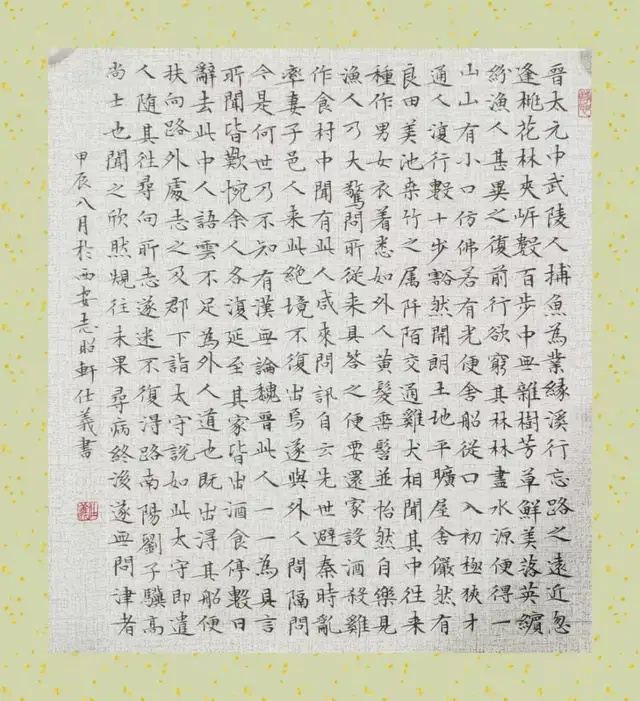 晋太元中武陵人捕魚為業緣溪行忘路之遠近忽
逢桃花林夾岸數百步中無雜樹芳草鮮美落英繽
紛漁人甚異之復前行欲窮其林林盡水源便得一
山山有小口仿佛若有光便舍船從口入初極狹才
通人復行數十步豁然開朗土地平曠屋舍儼然有
良田美池桑竹之属阡陌交通雞犬相聞其中往来
種作男女衣着悉如外人黄髮垂髫並怡然自樂見
漁人乃大驚問所從来具答之便要還家設酒殺雞
作食村中聞有此人咸來問訊自云先世避秦時亂
率妻子邑人来此絶境不復出焉遂與外人間隔問
今是何世乃不知有漢無論魏晋此人一一為具言
所聞皆歎惋余人各復延至其家皆出酒食停數日
辭去此中人語雲不足為外人道也既出得其船便
扶向路外處志之及郡下詣太守說如此太守即遣
人隨其往尋向所志遂迷不復得路南陽劉子驥高
尚士也聞之欣然規往未果尋病終後遂無問津者
甲辰八月於西安志昭軒仕義書